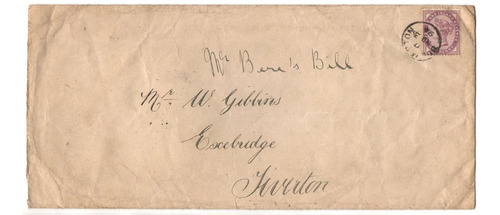 Mr Bere's Bill
Mr. W. Gibbins
Exebridge
Tiverton